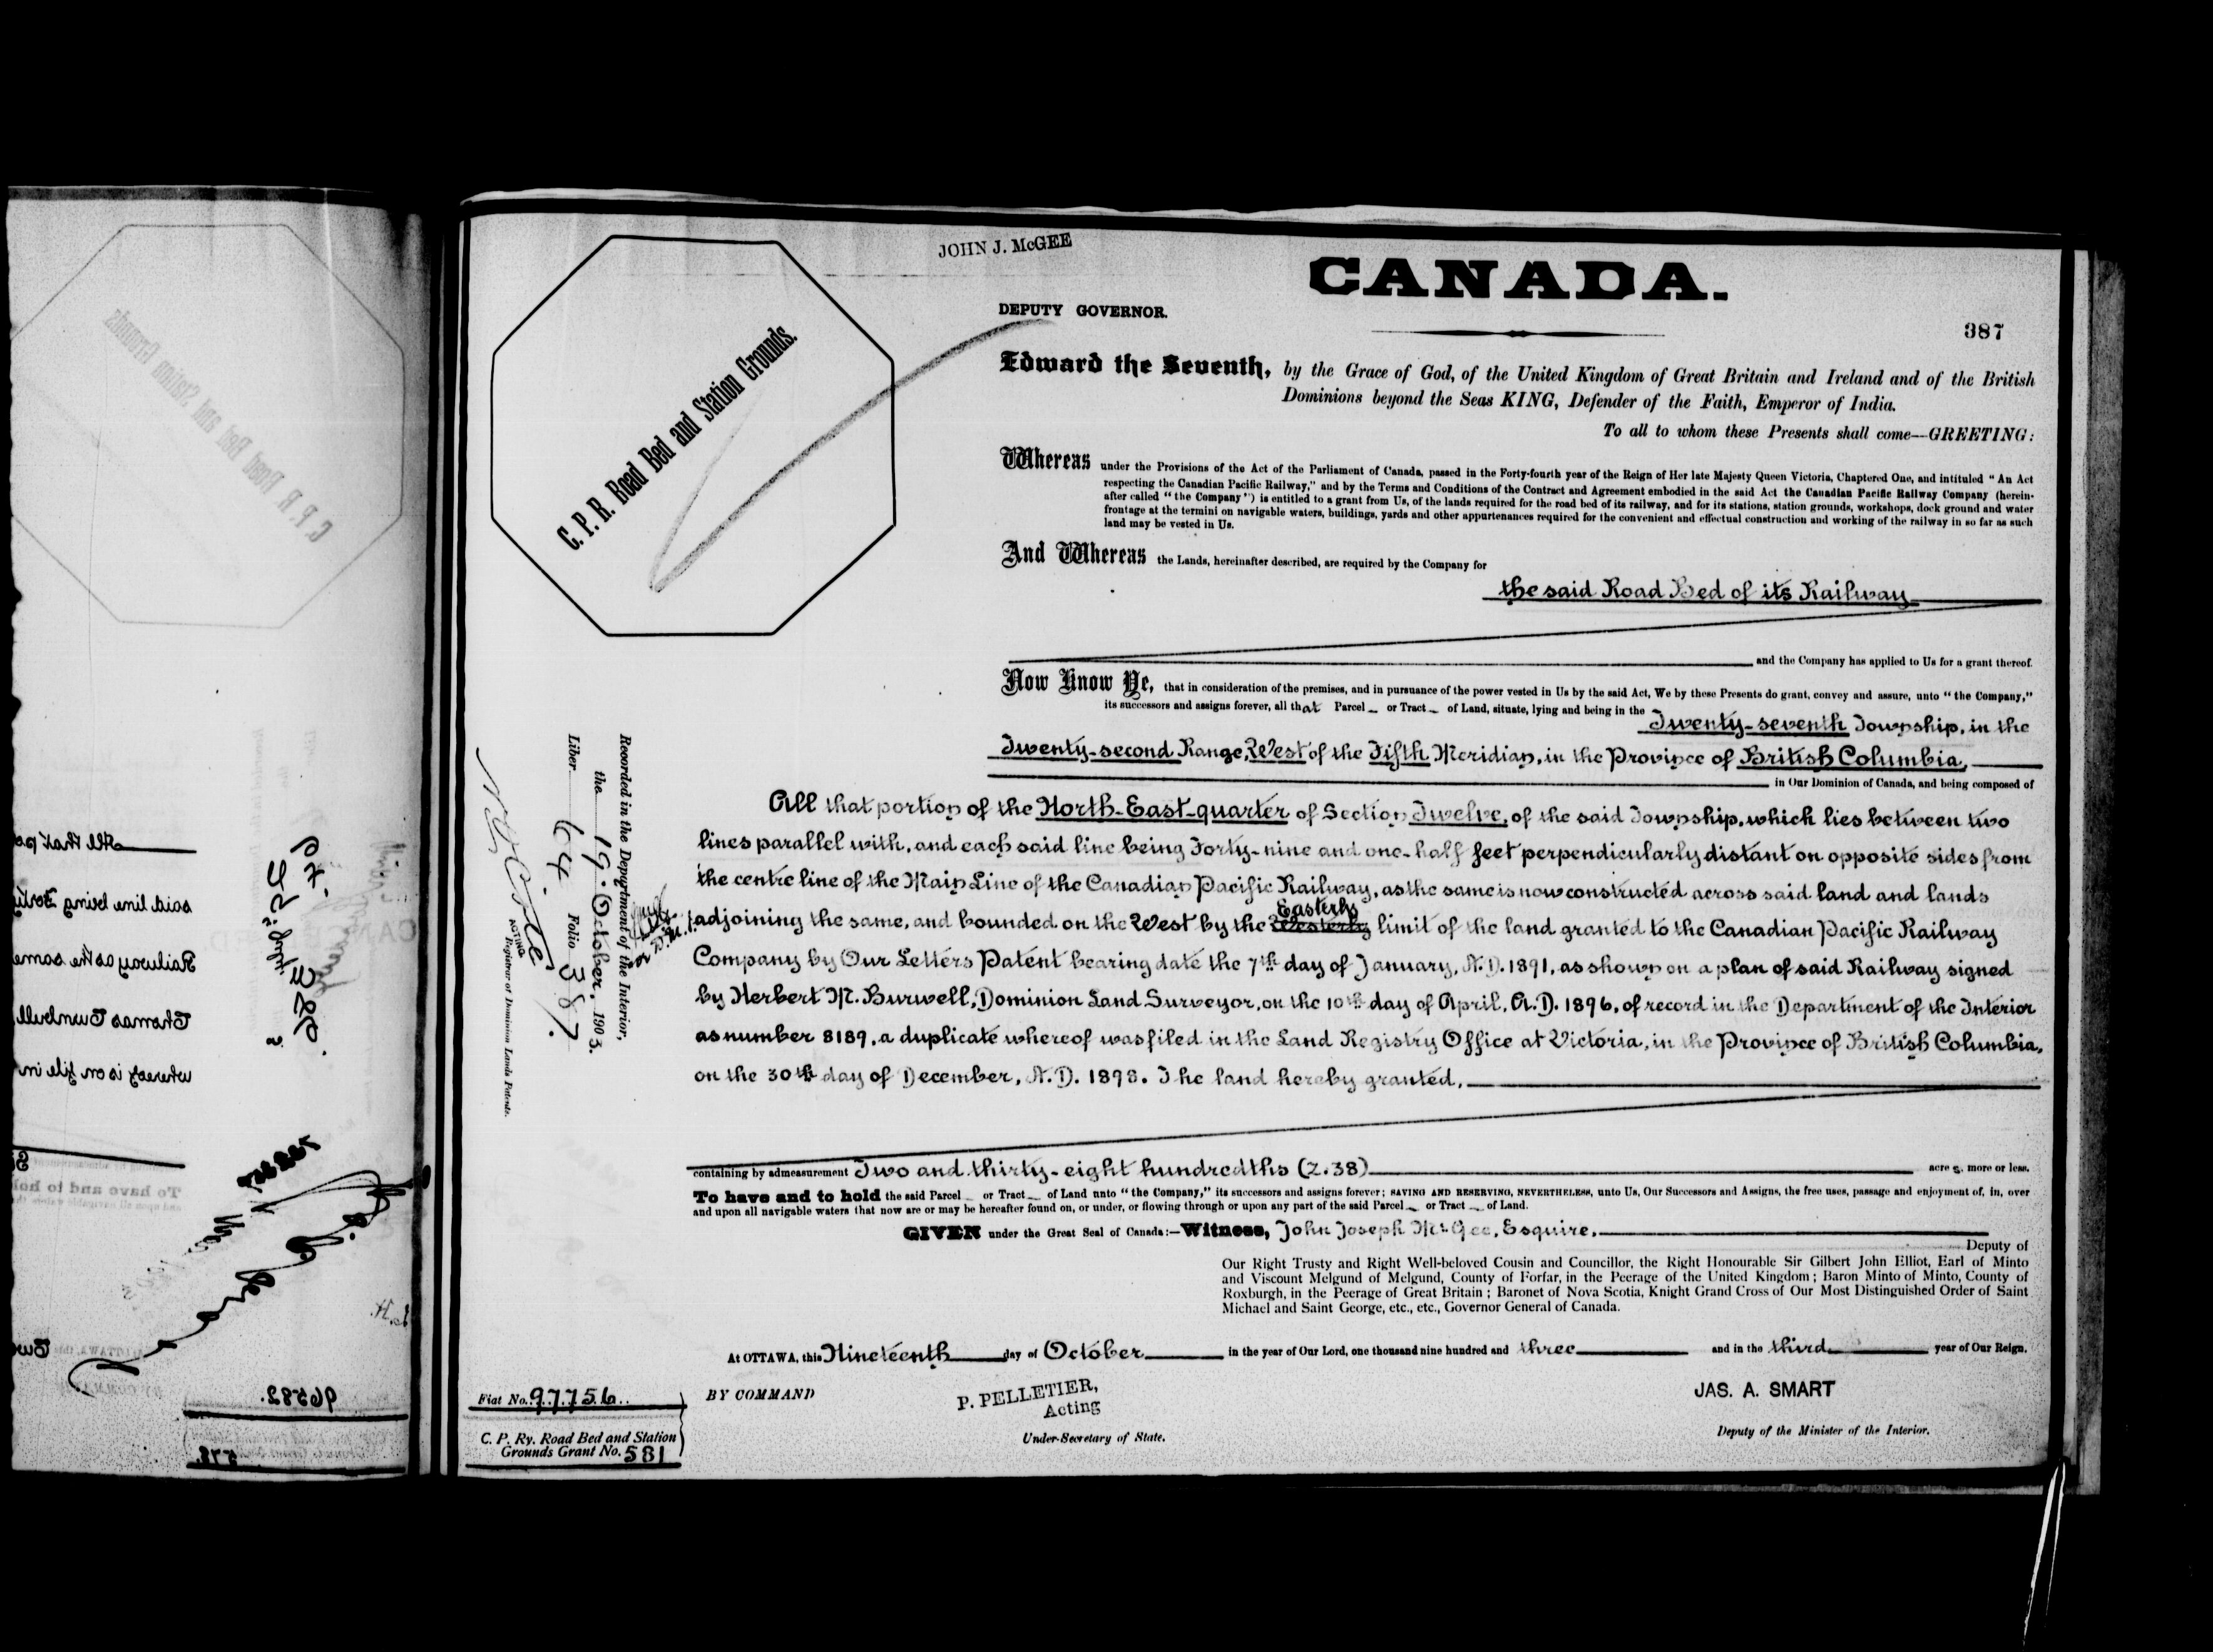 JOHN J. McGEE
CANADA.
DEPUTY GOVERNOR.
387
C. P. R. Road Bed and Station Grounds.
Edward the Seventh, by the Grace of God, of the United Kingdom of Great Britain and Ireland and of the British
Dominions beyond the Seas KING, Defender of the Faith, Emperor of India.
To all to whom these Presents shall come—GREETING:
Whereas under the Provisions of the Act of the Parliament of Canada, passed in the Forty-fourth year of the Reign of Her late Majesty Queen Victoria, Chaptered One, and intituled "An Act
respecting the Canadian Pacific Railway," and by the Terms and Conditions of the Contract and Agreement embodied in the said Act the Canadian Pacific Railway Company (herein-
after called "the Company") is entitled to a grant from Us, of the lands required for the road bed of its railway, and for its stations, station grounds, workshops, dock ground and water
frontage at the termini on navigable waters, buildings, yards and other appurtenances required for the convenient and effectual construction and working of the railway in so far as such
land may be vested in Us.
And Whereas the Lands, hereinafter described, are required by the Company for
the said Road Bed of its Railway
and the Company has applied to Us for a grant thereof.
Now Know Ye, that in consideration of the premises, and in pursuance of the power vested in Us by the said Act, We by these Presents do grant, convey and assure, unto "the Company,"
its successors and assigns forever, all that Parcel or Tract of Land, situate, lying and being in the Twenty-seventh Township, in the
Twenty-second Range, West of the Fifth Meridian, in the Province of British Columbia,
in Our Dominion of Canada, and being composed of
All that portion of the North-East-quarter of Section Twelve, of the said Township, which lies between two
lines parallel with, and each said line being Forty-nine and one-half feet perpendicularly distant on opposite sides from
the centre line of the Main Line of the Canadian Pacific Railway, as the same is now constructed across said land and lands
Easterly
adjoining the same, and bounded on the West by the Westerly limit of the land granted to the Canadian Pacific Railway
Company by Our Letters Patent bearing date the 7th day of January, A.D. 1891, as shown on a plan of said Railway signed
by Herbert M. Burwell, Dominion Land Surveyor, on the 10th day of April, A.D. 1896, of record in the Department of the Interior
as number 8189, a duplicate whereof was filed in the Land Registry Office at Victoria, in the Province of British Columbia,
on the 30th day of December, A.D. 1898. The land hereby granted,
containing by admeasurement Two and thirty-eight hundredths (2.38) acres, more or less.
To have and to hold the said Parcel or Tract of Land unto "the Company," its successors and assigns forever; SAVING AND RESERVING, NEVERTHELESS, unto Us, Our Successors and Assigns, the free uses, passage and enjoyment of, in, over
and upon all navigable waters that now are or may be hereafter found on, or under, or flowing through or upon any part of the said Parcel or Tract of Land.
GIVEN under the Great Seal of Canada:—Witness, John Joseph McGee, Esquire,
Deputy of
Our Right Trusty and Right Well-beloved Cousin and Councillor, the Right Honourable Sir Gilbert John Elliot, Earl of Minto
and Viscount Melgund of Melgund, County of Forfar, in the Peerage of the United Kingdom; Baron Minto of Minto, County of
Roxburgh, in the Peerage of Great Britain; Baronet of Nova Scotia, Knight Grand Cross of Our Most Distinguished Order of Saint
Michael and Saint George, etc., etc., Governor General of Canada.
At OTTAWA, this Nineteenth day of October in the year of Our Lord, one thousand nine hundred and three and in the third year of Our Reign.
BY COMMAND
P. PELLETIER,
Acting
Under-Secretary of State.
JAS. A. SMART
Deputy of the Minister of the Interior.
Recorded in the Department of the Interior,
the 19 October, 1903.
Liber 64 Folio 387.
ACTING
Registrar of Dominion Lands Patents.
Fiat No. 97756
C. P. Ry. Road Bed and Station
Grounds Grant No. 581
96582.
578